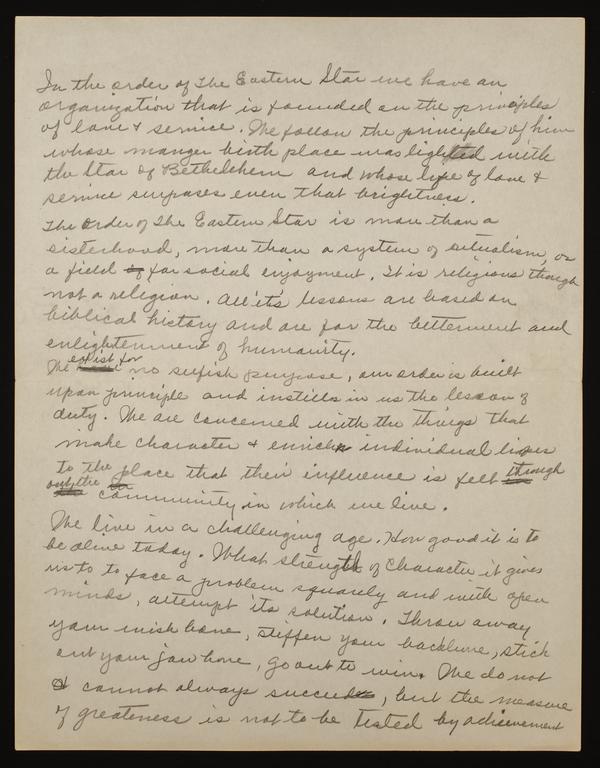 In the order of The Eastern Star we have an
organization that is founded on the principles
of love & service. We follow the principles of him
whose manger birth place was lighted with
the Star of Bethelehem and whose life of love &
service surpases even that brightness.
The Order of The Eastern Star is more than a
sisterhood, more than a system of ritualism, or
a field of for social enjoyment. It is religious though
not a religion. All it's lessons are based on
biblical history and are for the betterment and
enlightenment of humanity.
exist for
We no selfish purpose, our order is built
upon principle and instills in us the lesson of
duty. We are concerned with the things that
make character & enrich individual lives
to the place that their influence is felt through
out the community in which we live.
We live in a challenging age. How good it is to
be alive today. What strength of Character it gives
us to to face a problem squarely and with open
minds, attempt its solution. Throw away
your wish bone, stiffen your backbone, stick
out your jaw bone, go out to win. We do not
& cannot always succeed, but the measure
of greateness is not to be tested by achievement